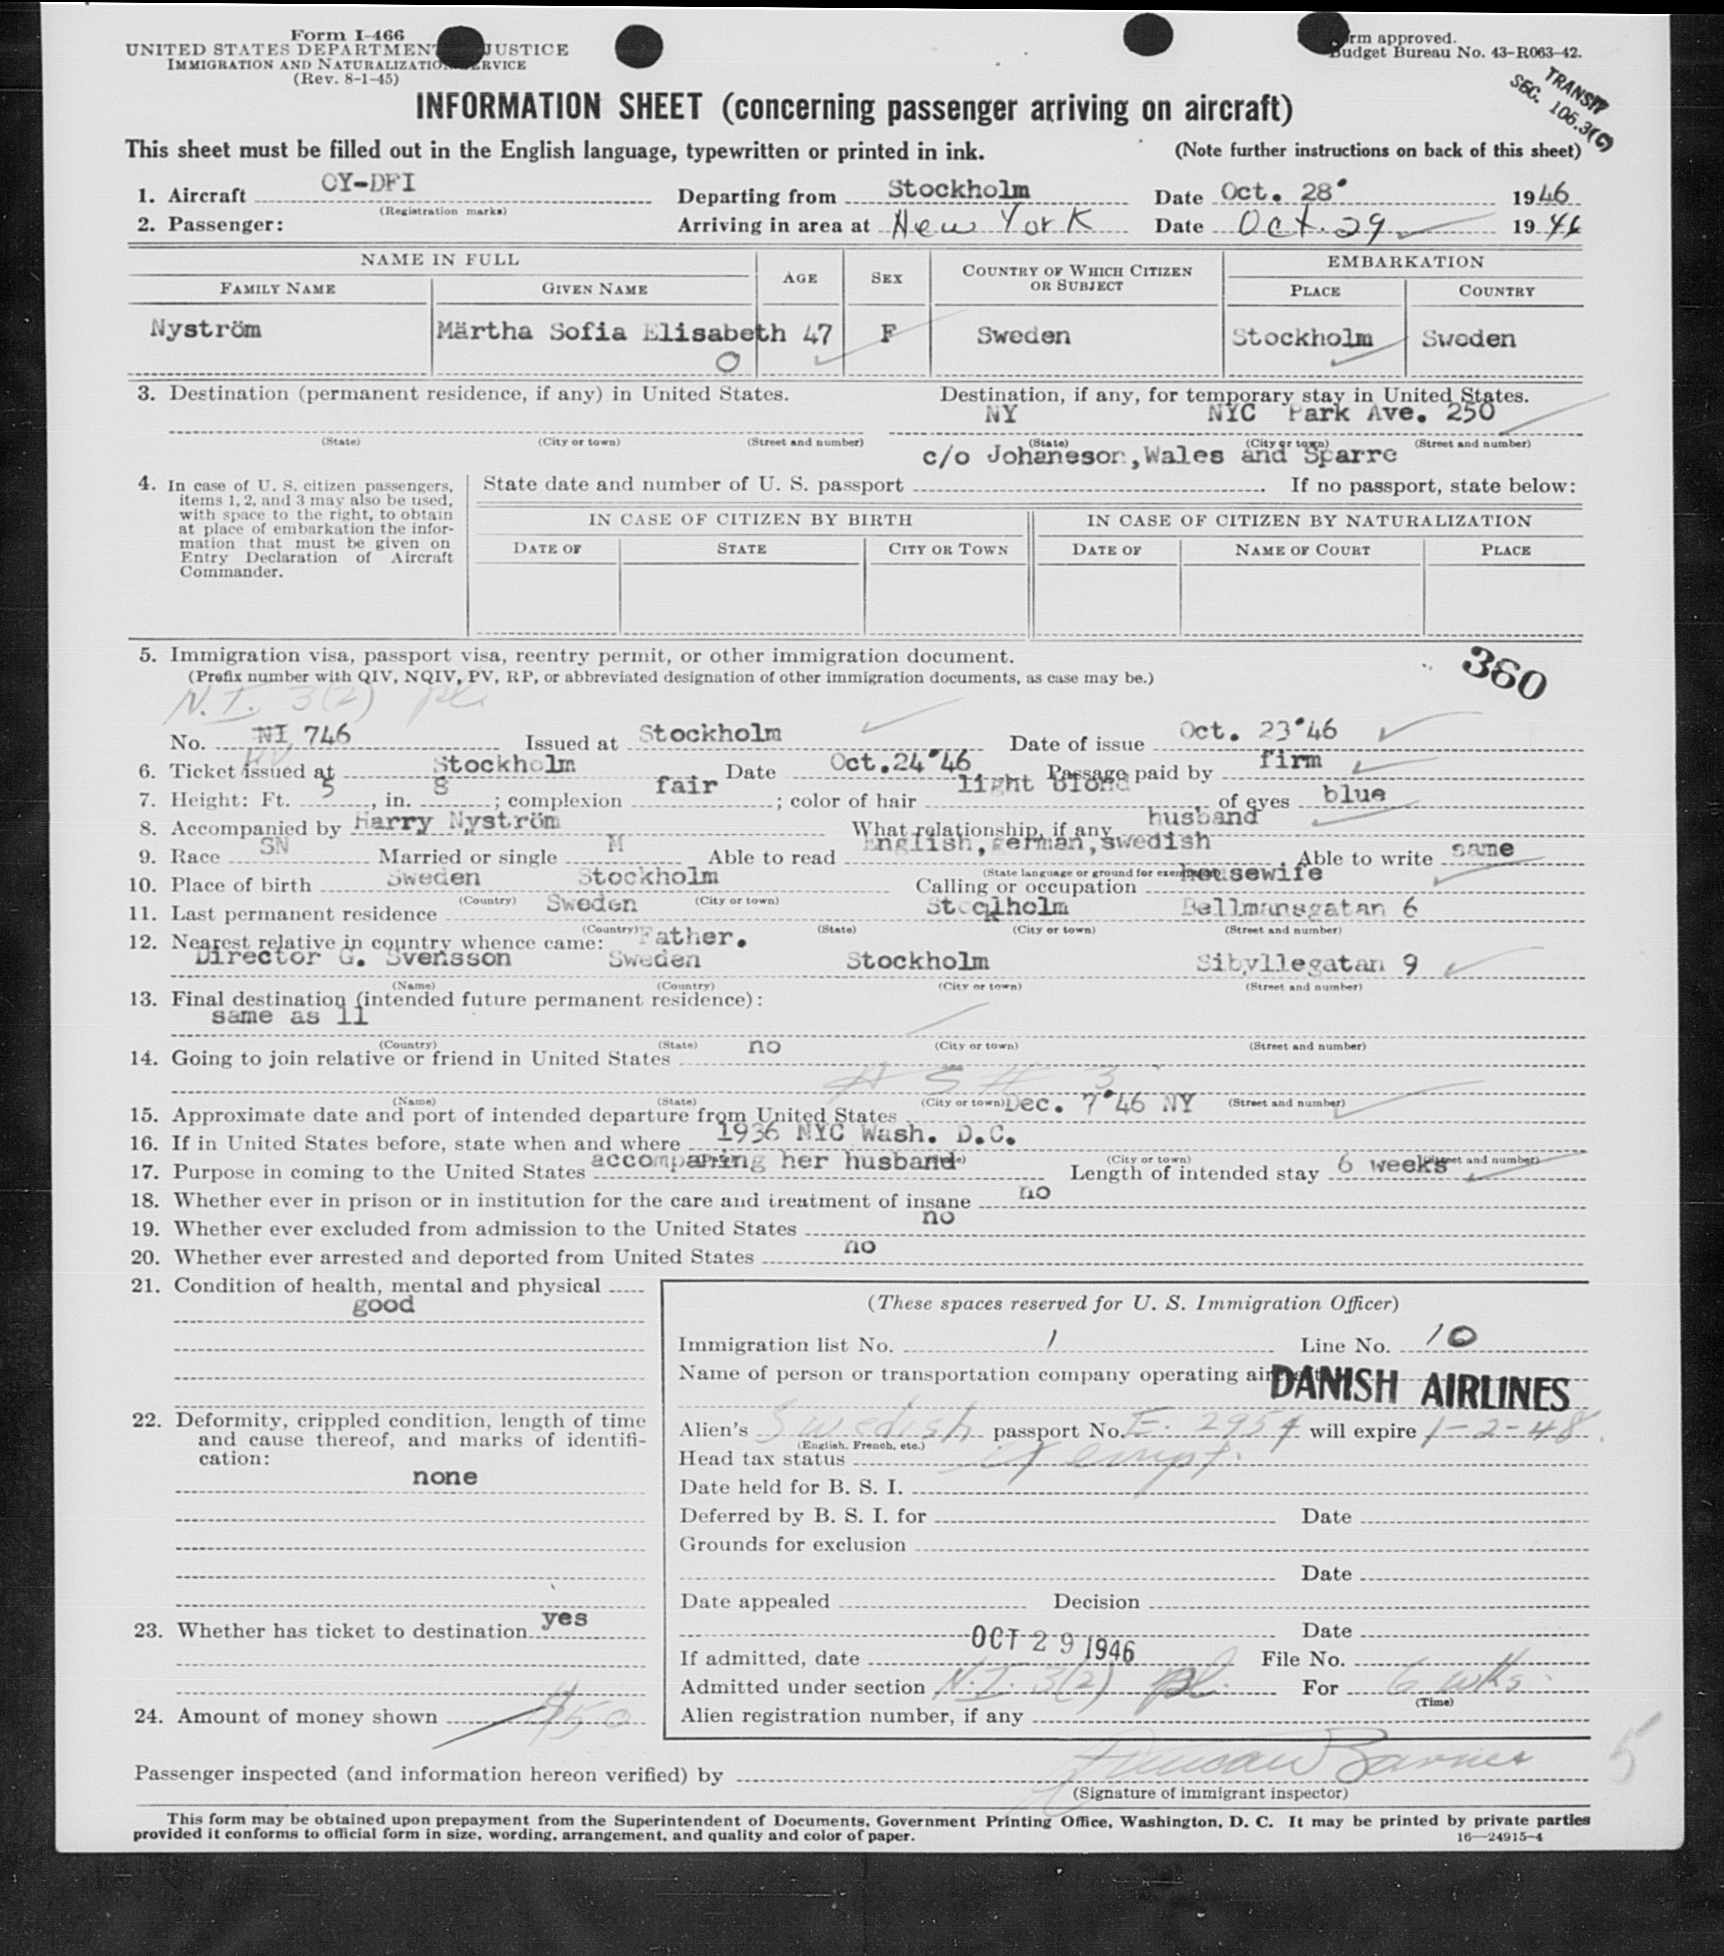 Form I-466
UNITED STATES DEPARTMENT JUSTICE
IMMIGRATION AND NATURALIZATION SERVICE
(Rev. 8-1-45)
Form approved.
Budget Bureau No. 43-R063-42.
TRANSIT
SEC. 106.3(C)
INFORMATION SHEET (concerning passenger arriving on aircraft)
This sheet must be filled out in the English language, typewritten or printed in ink. (Note further instructions on back of this sheet)
1. Aircraft OY-DFI Departing from Stockholm Date Oct. 28' 1946
(Registration marks)
2. Passenger: Arriving in area at New York Date Oct. 29 1946
NAME IN FULL AGE SEX COUNTRY OF WHICH CITIZEN OR SUBJECT EMBARKATION
FAMILY NAME GIVEN NAME PLACE COUNTRY
Nyström Märtha Sofia Elisabeth 47 F Sweden Stockholm Sweden
3. Destination (permanent residence, if any) in United States. Destination, if any, for temporary stay in United States.
NY NYC Park Ave. 250
(State) (City or town) (Street and number) (State) (City or town) (Street and number)
c/o Johaneson,Wales and Sparre
4. In case of U. S. citizen passengers, items 1, 2, and 3 may also be used, with space to the right, to obtain at place of embarkation the information that must be given on Entry Declaration of Aircraft Commander.
State date and number of U. S. passport . If no passport, state below:
IN CASE OF CITIZEN BY BIRTH IN CASE OF CITIZEN BY NATURALIZATION
DATE OF STATE CITY OR TOWN DATE OF NAME OF COURT PLACE
5. Immigration visa, passport visa, reentry permit, or other immigration document.
(Prefix number with QIV, NQIV, PV, RP, or abbreviated designation of other immigration documents, as case may be.)
360
N.I. 3(2)
No. NI 746 Issued at Stockholm Date of issue Oct. 23'46
6. Ticket issued at Stockholm Date Oct.24'46 Passage paid by firm
7. Height: Ft. 5, in. 8; complexion fair; color of hair light blond, of eyes blue
8. Accompanied by Harry Nyström What relationship, if any husband
9. Race SN Married or single M Able to read English,german,swedish. Able to write same
(State language or ground for exemption)
10. Place of birth Sweden Stockholm Calling or occupation housewife
(Country) (City or town)
11. Last permanent residence Sweden Stocklholm Bellmansgatan 6
(Country) (State) (City or town) (Street and number)
12. Nearest relative in country whence came: Father.
Director G. Svensson Sweden Stockholm Sibyllegatan 9
(Name) (Country) (City or town) (Street and number)
13. Final destination (intended future permanent residence):
same as 11
(Country) (State) (City or town) (Street and number)
14. Going to join relative or friend in United States no
(Name) (State) (City or town) (Street and number)
15. Approximate date and port of intended departure from United States Dec. 7'46 NY
16. If in United States before, state when and where 1936 NYC Wash. D.C.
(City or town) (Street and number)
17. Purpose in coming to the United States accompaning her husband Length of intended stay 6 weeks
18. Whether ever in prison or in institution for the care and treatment of insane no
19. Whether ever excluded from admission to the United States no
20. Whether ever arrested and deported from United States no
21. Condition of health, mental and physical
good
22. Deformity, crippled condition, length of time and cause thereof, and marks of identification:
none
23. Whether has ticket to destination yes
24. Amount of money shown $50
(These spaces reserved for U. S. Immigration Officer)
Immigration list No. 1 Line No. 10
Name of person or transportation company operating aircraft
DANISH AIRLINES
Alien's Swedish passport No. E. 2954 will expire 1-2-48.
(English, French, etc.)
Head tax status exempt.
Date held for B. S. I.
Deferred by B. S. I. for Date
Grounds for exclusion
Date
Date appealed Decision
Date
If admitted, date OCT 29 1946 File No.
Admitted under section N.I. 3(2) pl. For 6 wks.
(Time)
Alien registration number, if any
5
Passenger inspected (and information hereon verified) by Barnes
(Signature of immigrant inspector)
This form may be obtained upon prepayment from the Superintendent of Documents, Government Printing Office, Washington, D. C. It may be printed by private parties
provided it conforms to official form in size, wording, arrangement, and quality and color of paper. 16—24915-4